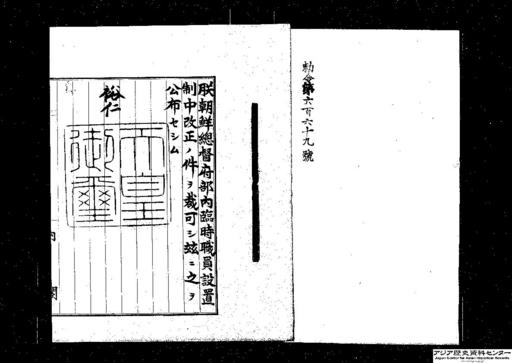 勅令第六百六十九號
朕朝鮮總督府部內臨時職員設置
制中改正ノ件ヲ裁可シ玆ニ之ヲ
公布セシム
裕仁
天皇
御璽
アジア歴史資料センター
Japan Center for Asian Historical Records